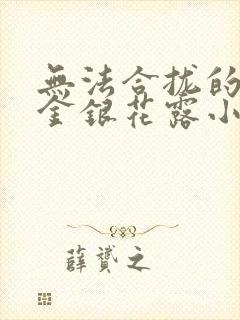 無法合拢的
金銀花露小
薛贇之